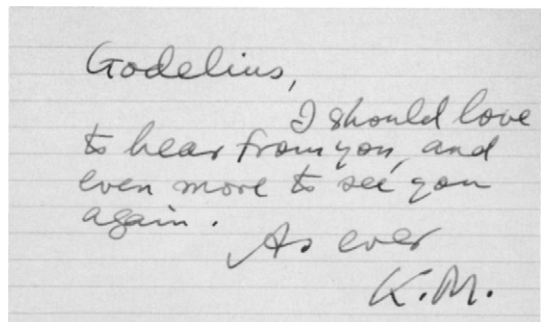 Godelius,
I should love
to hear from you, and
even more to see you
again.
As ever
K.M.